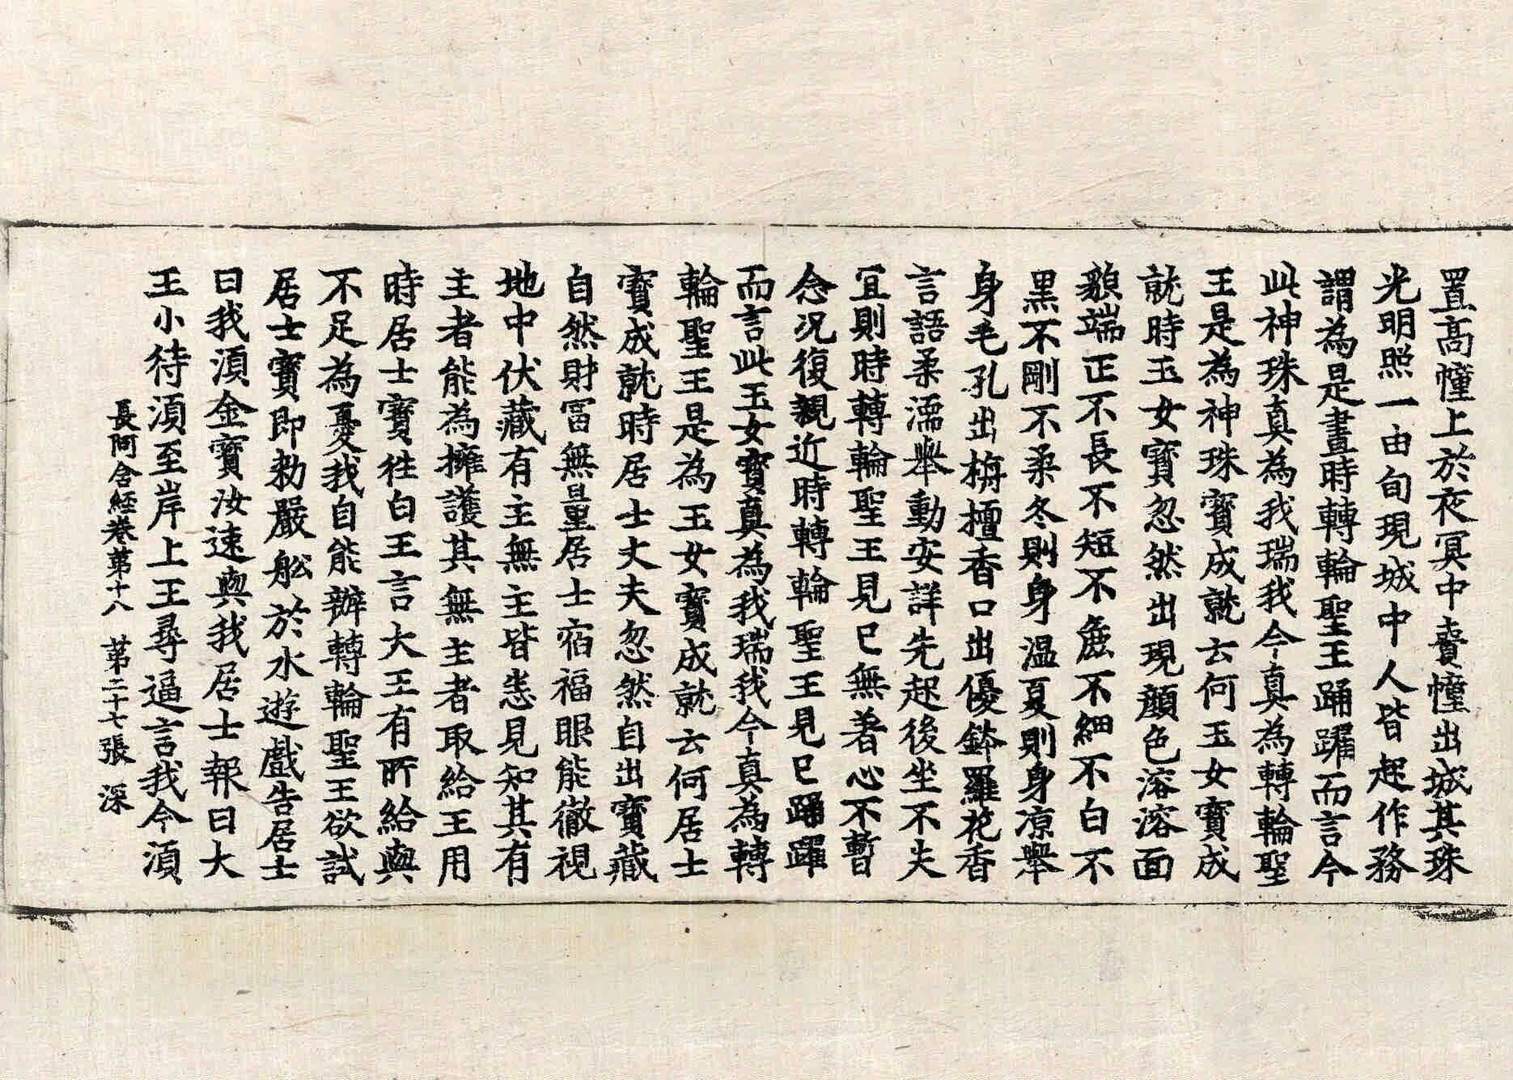 置高幢上於夜冥中賷幢出城其珠
光明照一由旬現城中人皆起作務
謂為是晝時轉輪聖王踊躍而言今
此神珠真為我瑞我今真為轉輪聖
王是為神珠寶成就云何玉女寶成
就時玉女寶忽然出現顔色溶溶面
貌端正不長不短不麁不細不白不
黒不剛不柔冬則身温夏則身凉舉
身毛孔出栴檀香口出優鉢羅花香
言語柔濡舉動安詳先起後坐不失
冝則時轉輪聖王見已無著心不暫
念况復親近時轉輪聖王見已踊躍
而言此玉女寶真為我瑞我今真為轉
輪聖王是為玉女寶成就云何居士
寶成就時居士丈夫忽然自出寶藏
自然財冨無量居士宿福眼能徹視
地中伏藏有主無主皆悉見知其有
主者能為擁護其無主者取給王用
時居士寶往白王言大王有所給與
不足為憂我自能辦轉輪聖王欲試
居士寶即勑嚴舩於水遊戲告居士
曰我湏金寶汝速與我居士報曰大
王小待湏至岸上王尋逼言我今湏
長阿含經卷苐十八 苐二十七張 深